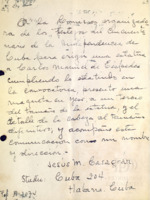 A la Comision organizado-
ra de los festejos del Cincuen-
tenario de la Independencia de
Cuba para erigir una estatua
a Carlos Manuel de Céspedes
Cumpliendo lo estatuido en
la convocatoria, presento una
maqueta en yeso a un tercio
del tamaño de la estatua, y el
detalle de la cabeza al tamaño
definitivo, y acompaño esta
comunicación con mi nombre
y direccion.
Jesus M. Casagran
Studio Cuba 204
Habana Cuba